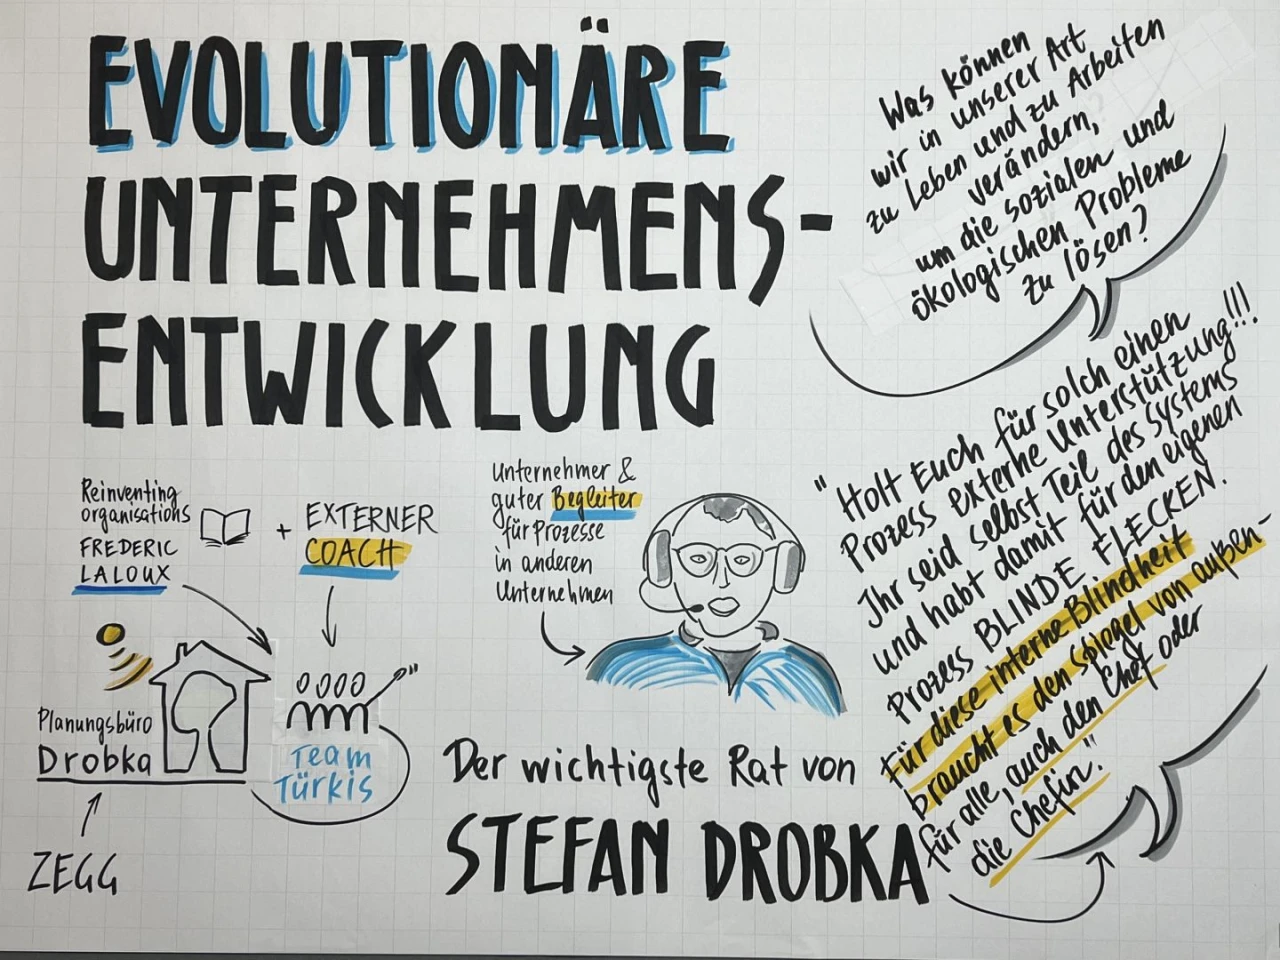 EVOLUTIONÄRE
UNTERNEHMENS-
ENTWICKLUNG
Was können
wir in unserer Art
zu Leben und zu Arbeiten
verändern,
um die sozialen und
ökologischen Probleme
zu lösen?
Reinventing
organisations
FREDERIC
LALOUX
+ EXTERNER
COACH
Unternehmer &
guter Begleiter
für Prozesse
in anderen
Unternehmen
"Holt Euch für solch einen
Prozess externe Unterstützung!!!
Ihr seid selbst Teil des Systems
und habt damit für den eigenen
Prozess BLINDE FLECKEN.
Für diese interne Blindheit
braucht es den Spiegel von außen-
für alle, auch den Chef oder
die Chefin."
Planungsbüro
Drobka
Team
Türkis
ZEGG
Der wichtigste Rat von
STEFAN DROBKA